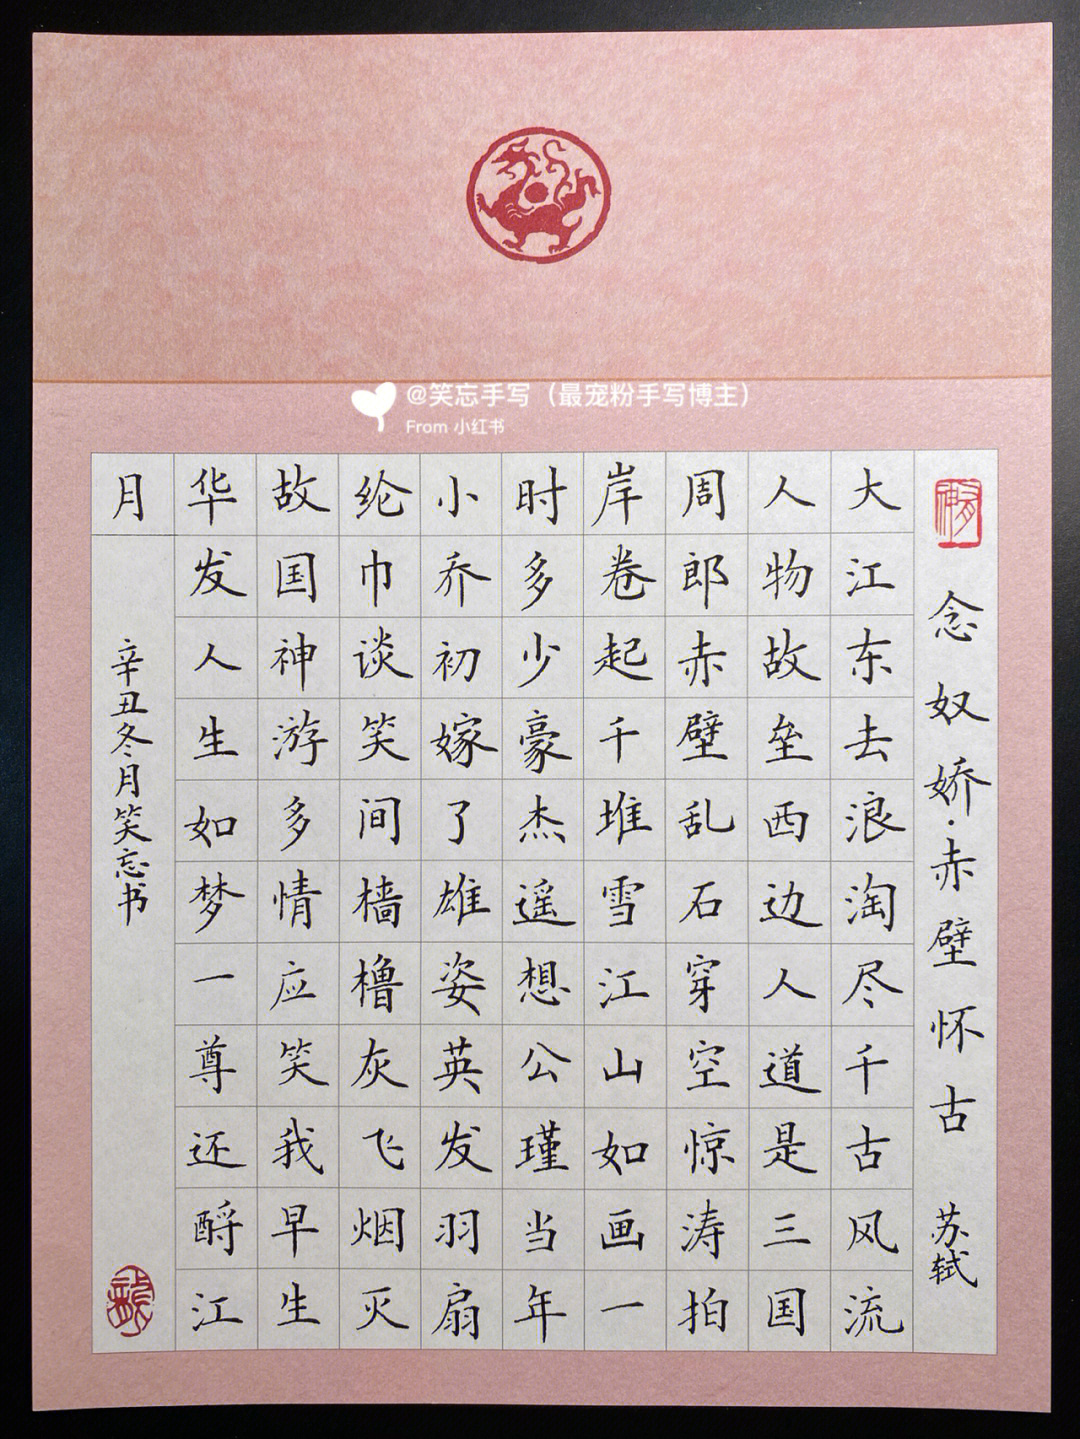 @笑忘手写（最宠粉手写博主）
From 小红书
念奴娇·赤壁怀古 苏轼
大江东去浪淘尽千古风流
人物故垒西边人道是三国
周郎赤壁乱石穿空惊涛拍
岸卷起千堆雪江山如画一
时多少豪杰遥想公瑾当年
小乔初嫁了雄姿英发羽扇
纶巾谈笑间樯橹灰飞烟灭
故国神游多情应笑我早生
华发人生如梦一尊还酹江
月
辛丑冬月笑忘书